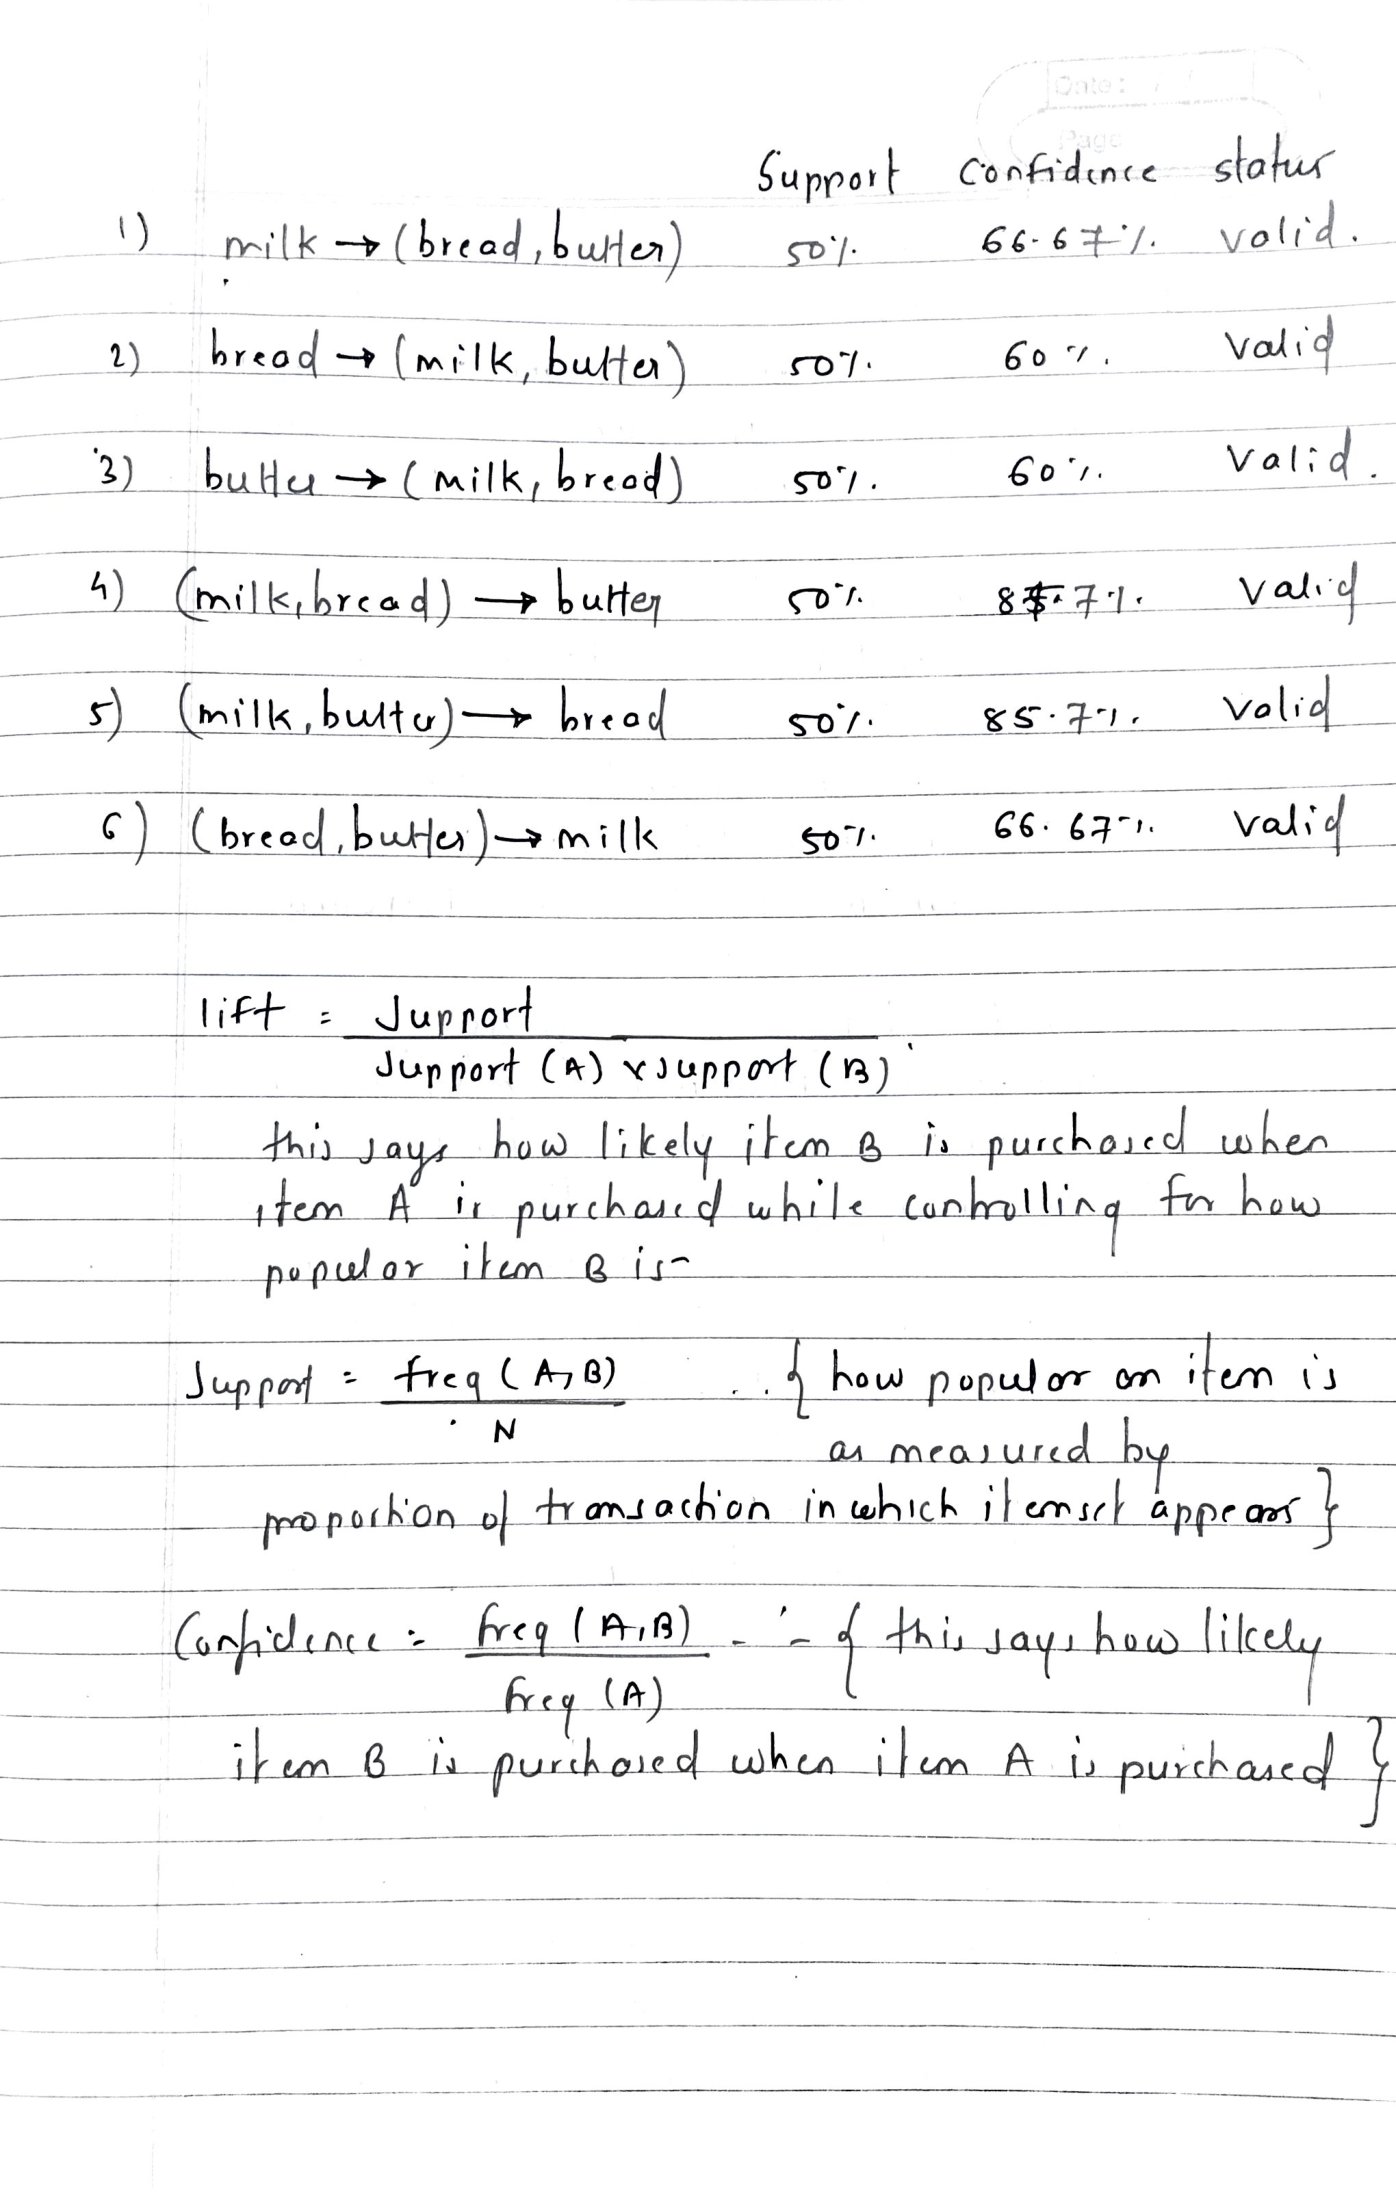 Date:
Page
Support Confidence status
1) milk → (bread, butter) 50% 66.67% valid.
2) bread → (milk, butter) 50% 60% Valid
3) butter → (milk, bread) 50% 60% Valid.
4) (milk, bread) → butter 50% 85.7% Valid
5) (milk, butter) → bread 50% 85.7% Valid
6) (bread, butter) → milk 50% 66.67% Valid
lift = Support
Support (A) x support (B)
this says how likely item B is purchased when
item A is purchased while controlling for how
popular item B is-
Support = freq (A, B) .. { how popular an item is
N
as measured by
proportion of transaction in which itemset appears }
Confidence = freq (A, B) - - { this says how likely
freq (A)
item B is purchased when item A is purchased }